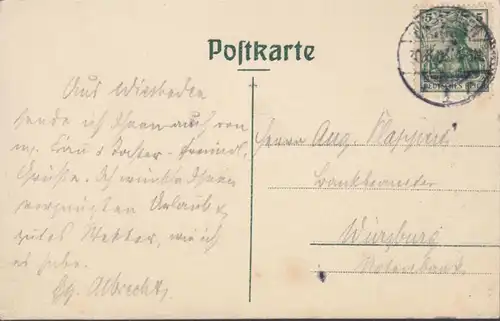 Postkarte
Aus Wiesbaden
sende ich Ihnen auch von
m. Frau & Tochter freundl.
Grüße. Ich wünsche Ihnen
vergnügten Urlaub &
gutes Wetter, wie ich
es habe.
Gg. Albrecht
Herrn Aug.
Bankbeamter
Würzburg
Notenbank
5
DEUTSCHES